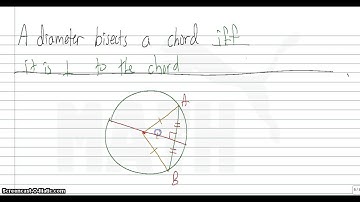 A diameter bisects a chord iff
it is ⊥ to the chord
A
B
Screencast-O-Matic.com